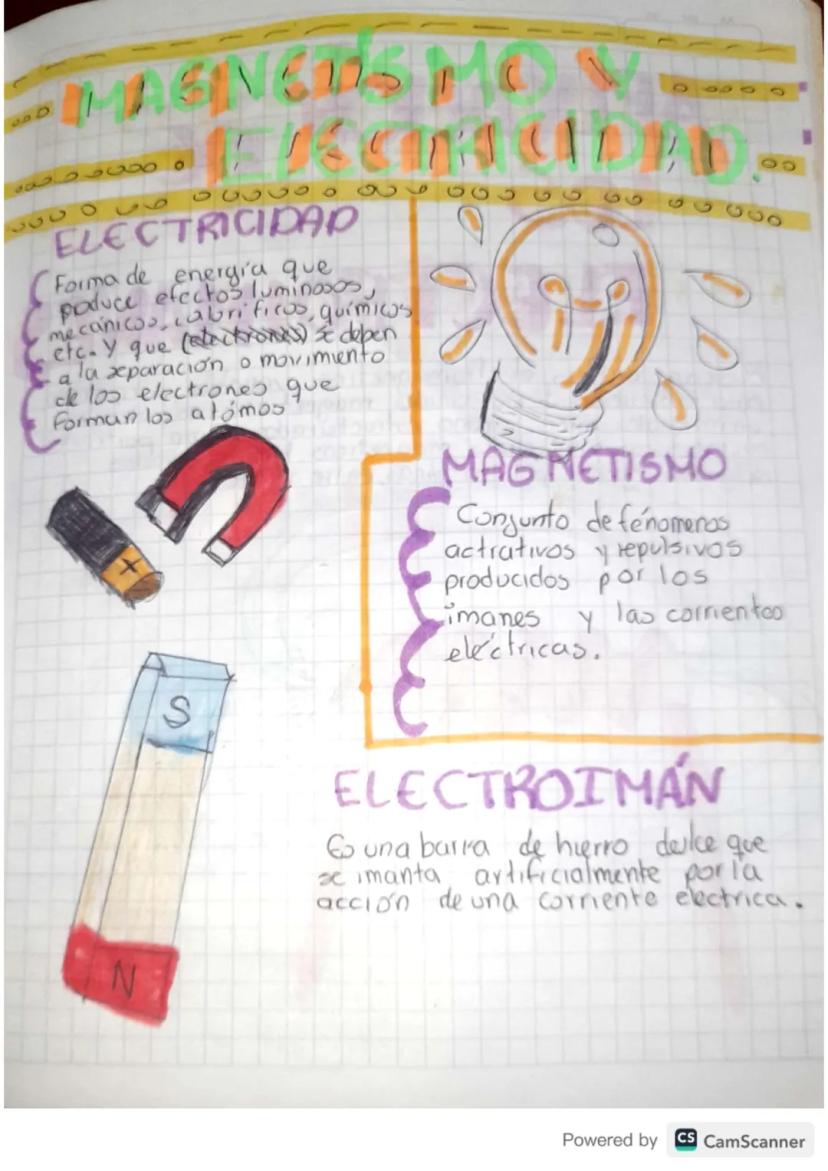 MAGNETISMO Y
ELECTRICIDAD.
ELECTRICIDAD
Forma de energía que
poduce efectos luminosos,
mecánicos, calorificos, químicos
etc. Y que (electrones) se deben
a la separación o movimiento
de los electrones que
forman los atómos
+
S
N
MAGNETISMO
Conjunto de fénomenos
actrativos y repulsivos
producidos por los
imanes y las corrientes
eléctricas.
ELECTROIMÁN
Es una barra de hierro dulce que
se imanta artificialmente por la
acción de una corriente electrica.
Powered by CS CamScanner